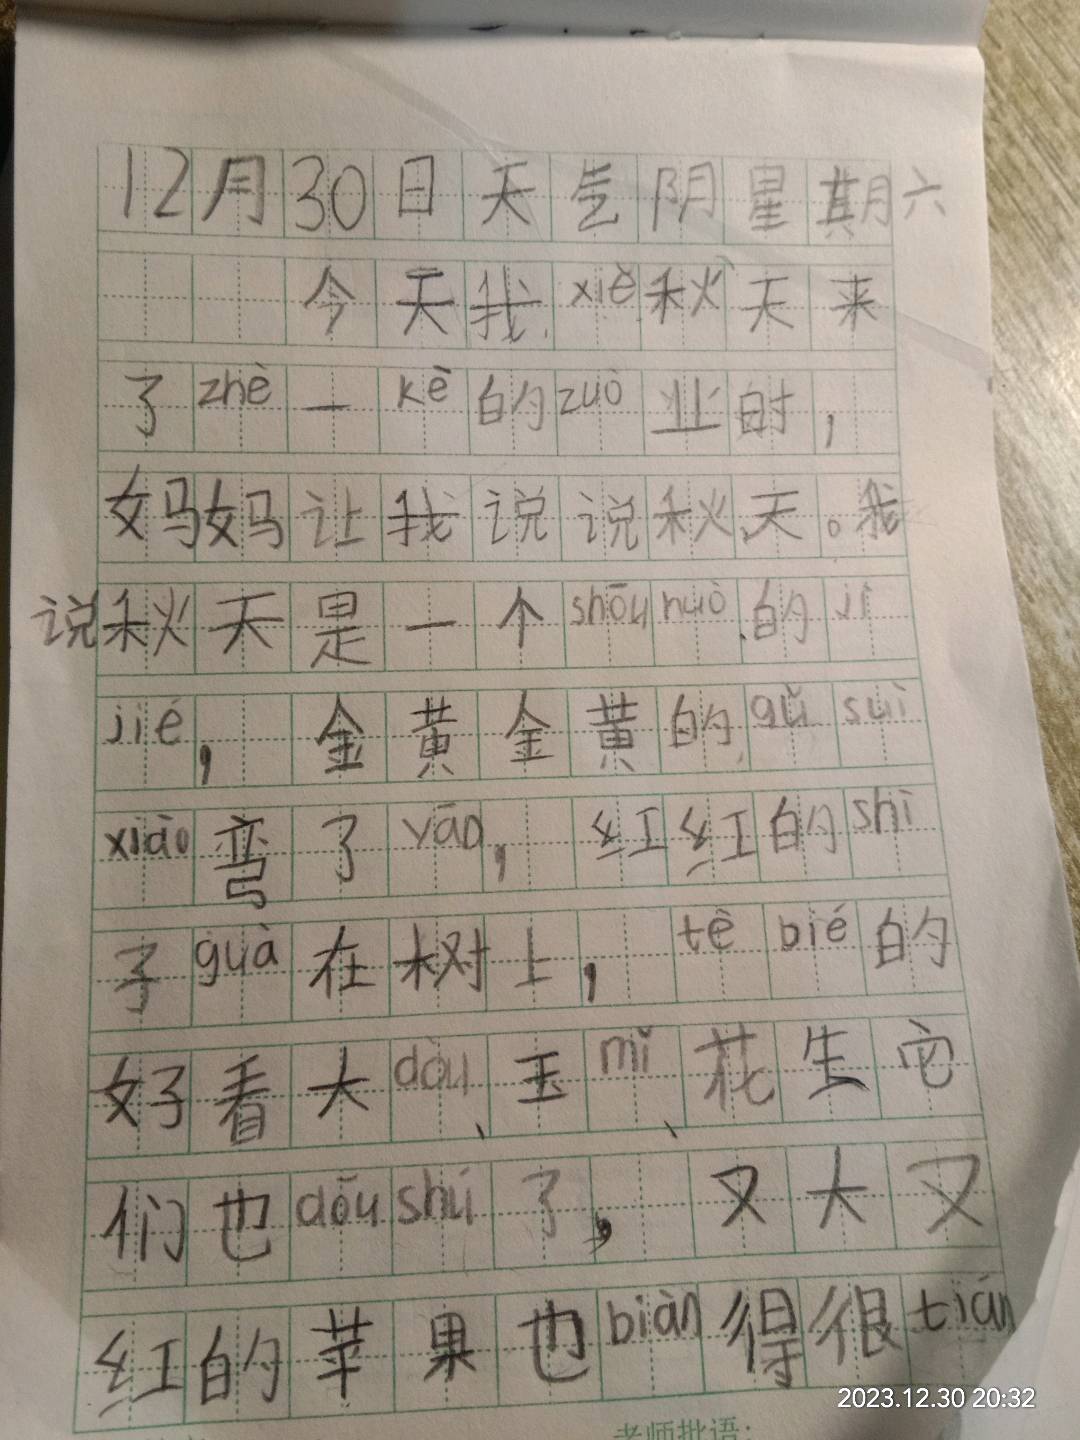 12月30日天气阴星期六
今天我xiě秋天来
了zhè一kè的zuò业时，
妈妈让我说说秋天。我
说秋天是一个shōuhuò的jì
jié，金黄金黄的gǔsuì
xiào弯了yāo，红红的shì
子guà在树上，tèbié的
好看大dòu、玉mǐ、花生它
们也dōushú了，又大又
红的苹果也biàn得很tián
老师批语：
2023.12.30 20:32